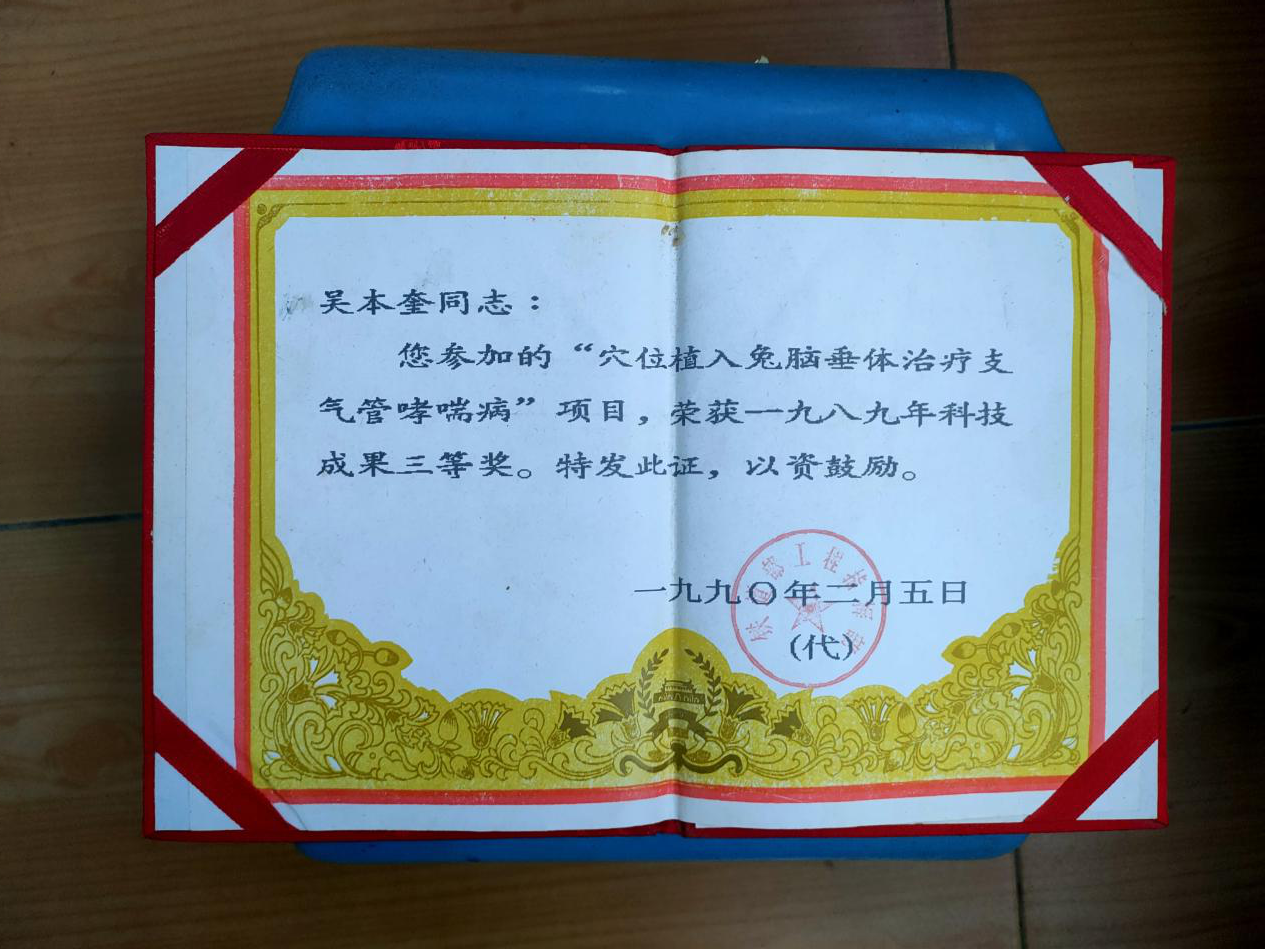 吴本奎同志：
您参加的“穴位植入兔脑垂体治疗支
气管哮喘病”项目，荣获一九八九年科技
成果三等奖。特发此证，以资鼓励。
一九九〇年二月五日
(代)